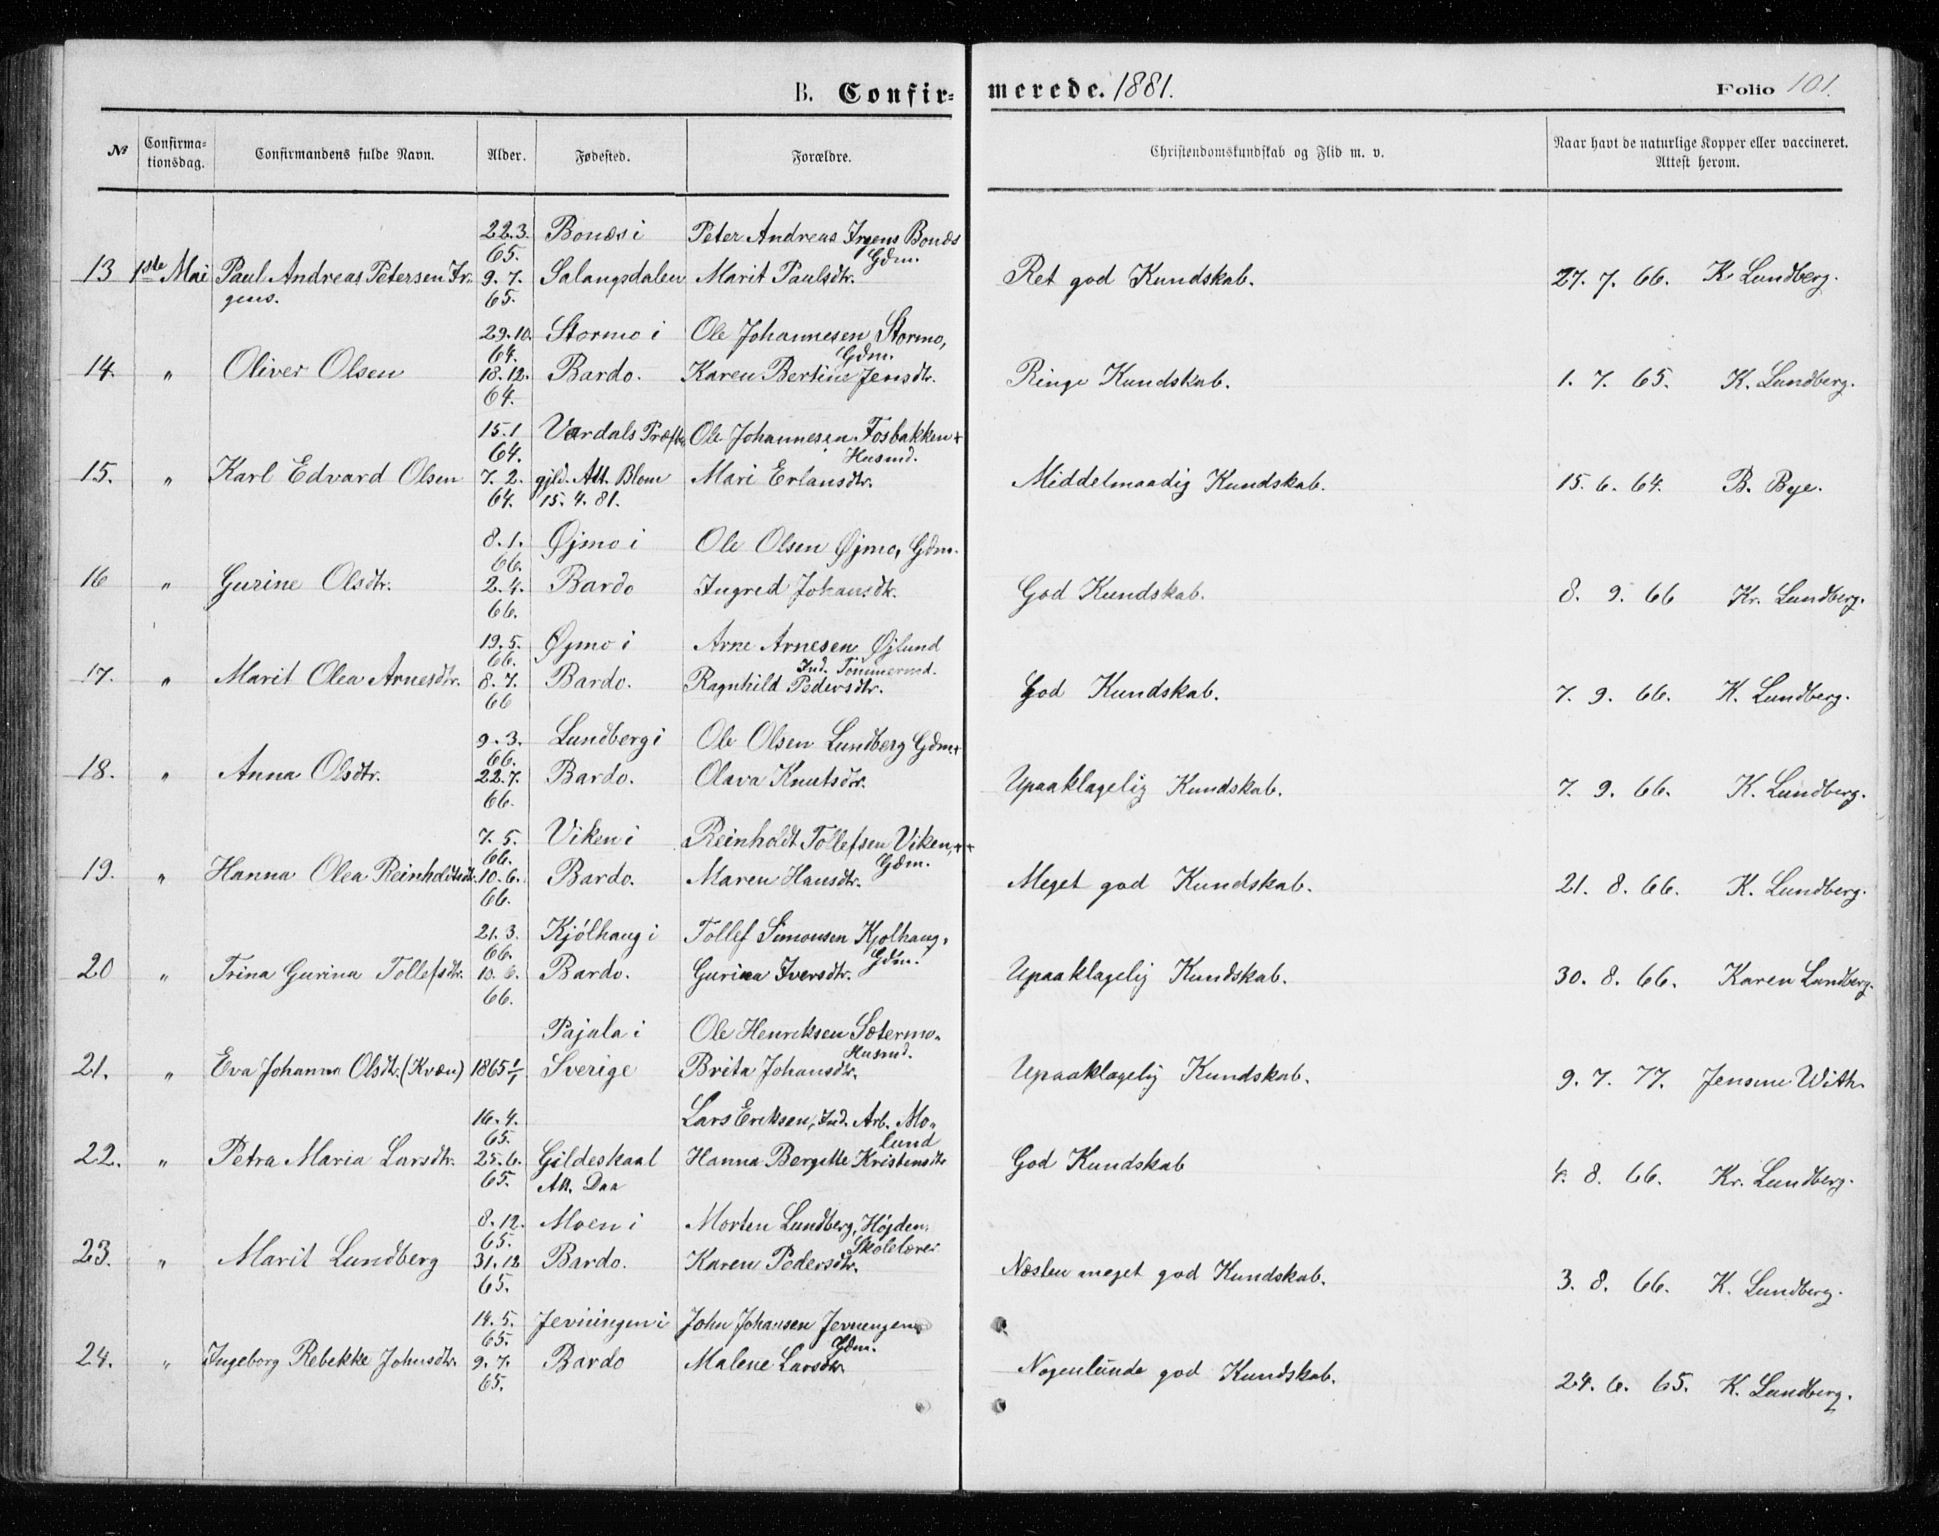 B. Confir-merede. 1881. Folio 101.
No Confirma-tionsdag. Confirmandens fulde Navn. Alder. Fødested. Forældre. Christendomskundskab og Flid m. v. Naar havt de naturlige Kopper eller vaccineret. Attest herom.
22.3. Bonæs i Peter Andreas Irgens Bonæs
65. Gdm.
13 1ste Mai Paul Andreas Petersen Ir- 9. 7. Salangsdalen Marit Paulsdtr. Ret god Kundskab. 27. 7. 66. K. Lundberg.
gens. 65.
29.10. Stormo i Ole Johannesen Stormo,
64. Gdm.
14. " Oliver Olsen 18.12. Bardo. Karen Bertine Jensdtr. Ringe Kundskab. 1. 7. 65. K. Lundberg.
64.
15.1 Værdals Præste Ole Johannesen Fosbakken +
64. Husmd.
15. " Karl Edvard Olsen 7. 2. gjld. Att. Blom Mari Erlansdtr. Middelmaadig Kundskab. 15. 6. 64. B. Bye.
64. 15. 4. 81.
8.1. Øjmo i Ole Olsen Øjmo, Gdm.
66.
16 " Gurine Olsdtr. 2.4. Bardo Ingred Johansdtr. God Kundskab. 8. 9. 66 Kr. Lundberg.
66.
19.5. Øjmo i Arne Arnesen Øjlund
66. Ind. Tömmermd.
17. " Marit Olea Arnesdtr. 8.7. Bardo. Ragnhild Pedersdtr. God Kundskab. 7. 9. 66. K. Lundberg.
66
9.3. Lundberg i Ole Olsen Lundberg Gdm. +
66.
18. " Anna Olsdtr. 22.7. Bardo. Olava Knutsdtr. Upaaklagelig Kundskab. 7. 9. 66. K. Lundberg.
66.
7. 5. Viken i Reinholdt Tollefsen Viken, ++
66. Gdm.
19. " Hanna Olea Reinholdtsdtr. 10.6. Bardo. Maren Hansdtr. Meget god Kundskab. 21. 8. 66. K. Lundberg.
66.
21.3. Kjölhaug i Tollef Simonsen Kjolhaug,
66. Gdm.
20 " Trina Gurina Tollefsdtr. 10.6. Bardo. Gurina Iversdtr. Upaaklagelig Kundskab. 30. 8. 66. Karen Lundberg.
66.
Pajala i Ole Henriksen Sætermo.
Husmd.
21. " Eva Johanna Olsdtr. (Kvæn) 1865 1/1 Sverige Brita Johansdtr. Upaaklagelig Kundskab. 9. 7. 77. Jensine With.
16.4. Lars Eriksen, Ind. Arb. Mo-
65. lund
22. " Petra Maria Larsdtr. 25.6. Gildeskaal Hanna Bergitte Kristensdtr God Kundskab 4. 8. 66. Kr. Lundberg.
65. Att. Daa
8.12. Moen i Morten Lundberg, Højden,
65. Skolelærer
23. " Marit Lundberg 31.12 Bardo. Karen Pedersdtr. Næsten meget god Kundskab. 3. 8. 66. K. Lundberg.
65.
14.5. Jevningen i John Johansen Jevnengen,
65. Gdm.
24. " Ingeborg Rebekke Johnsdtr. 9.7. Bardo Malene Larsdtr. Nogenlunde god Kundskab. 24. 6. 65. K. Lundberg.
65.